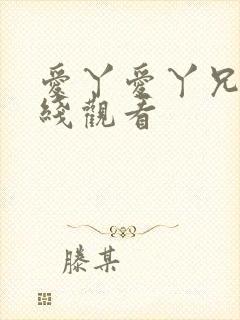 愛丫愛丫兄
綫觀看
滕某